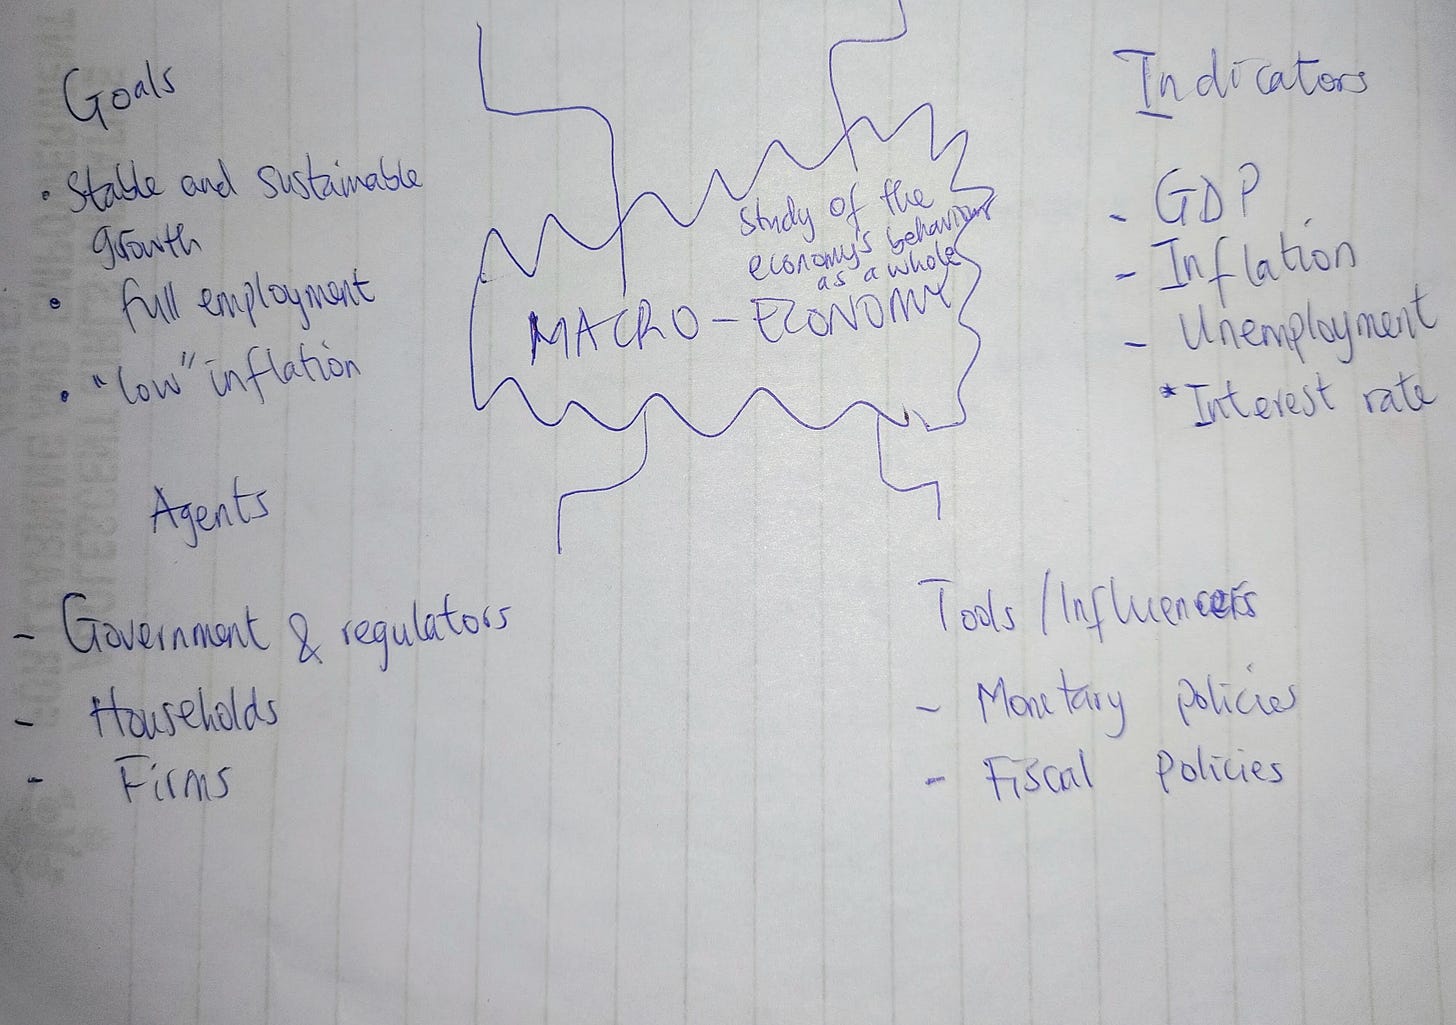 Goals
• Stable and sustainable
growth
• full employment
• "low" inflation
Study of the
economy's behaviour
as a whole
MACRO - ECONOMY
Indicators
- GDP
- Inflation
- Unemployment
* Interest rate
Agents
- Government & regulators
- Households
- Firms
Tools / Influencers
- Monetary policies
- Fiscal policies